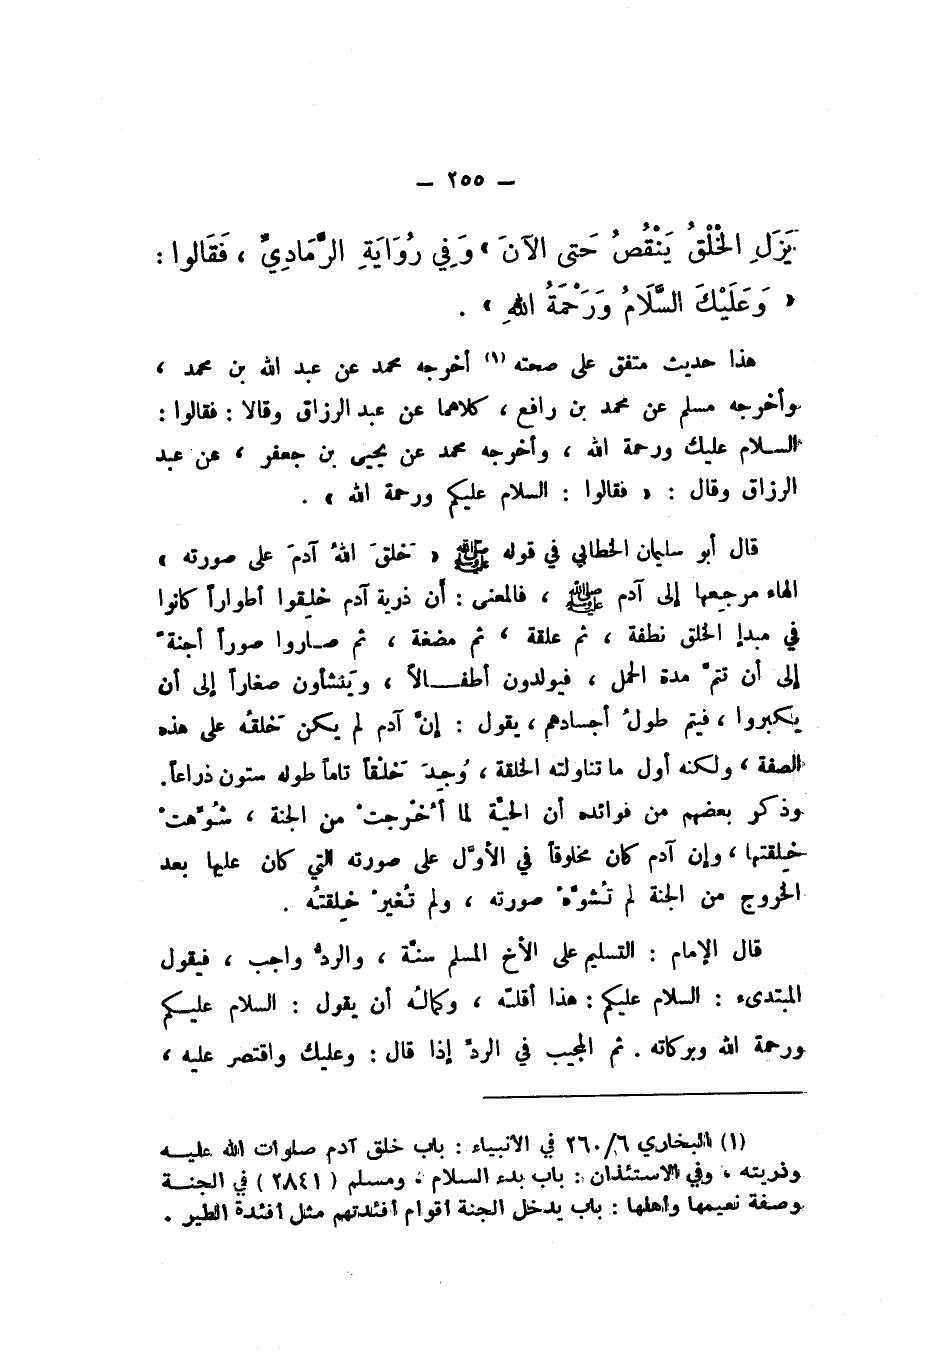 – ٢٥٥ –
يَزَلِ الخْلْقُ يَنْقُصُ حَتى الآنَ » وَفِي رُوَايَةِ الرَّمَادِيِّ ، فَقَالوا :
« وَعَلَيْكَ السَّلَامُ وَرَحْمَةُ اللهِ » .
هذا حديث متفق على صحته (١) أخرجه محمد عن عبد الله بن محمد ،
وأخرجه مسلم عن محمد بن رافع ، كلاهما عن عبد الرزاق وقالا : فقالوا :
السلام عليك ورحمة الله ، وأخرجه محمد عن يحيى بن جعفر ، عن عبد
الرزاق وقال : « فقالوا : السلام عليكم ورحمة الله » .
قال أبو سليمان الخطابي في قوله ﷺ « خَلقَ اللهُ آدمَ على صورته »
الهاء مرجعها إلى آدم ﷺ ، فالمعنى : أن ذرية آدم خلِقوا أطواراً كانوا
في مبدإ الخلق نطفة ، ثم علقة ، ثم مضغة ، ثم صاروا صوراً أجنةً
إلى أن تتمَّ مدة الحمل ، فيولدون أطفالاً ، ويَنشأون صغاراً إلى أن
يكبروا ، فيتم طولُ أجسادهم ، يقول : إنَّ آدم لم يكن خَلقُه على هذه
الصفة ، ولكنه أول ما تناولته الخلقة ، وُجِدَ خَلْقاً تاماً طوله ستون ذراعاً.
وذكر بعضهم من فوائده أن الحيَّة لما أُخْرجتْ من الجنة ، شُوِّهتْ
خِلقتها ، وإن آدم كان مخلوقاً في الأوَّل على صورته التي كان عليها بعد
الخروج من الجنة لم تُشوَّهْ صورته ، ولم تُغيرْ خِلقتُه .
قال الإمام : التسليم على الأخ المسلم سنَّة ، والردُّ واجب ، فيقول
المبتدىء : السلام عليكم : هذا أقلّه ، وكمالُه أن يقول : السلام عليكم
ورحمة الله وبركاته . ثم المجيب في الردِّ إذا قال : وعليك واقتصر عليه ،
(١) البخاري ٢٦٠/٦ في الأنبياء : باب خلق آدم صلوات الله عليه
وذريته ، وفي الاستئذان : باب بدء السلام ، ومسلم ( ٢٨٤١ ) في الجنة
وصفة نعيمها وأهلها : باب يدخل الجنة أقوام أفئدتهم مثل أفئدة الطير .